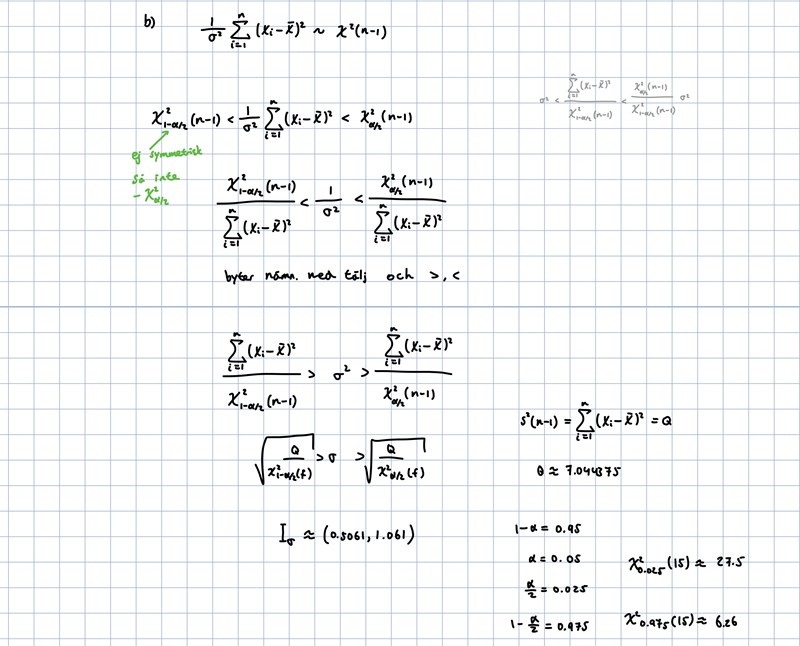 b) 1/σ² ∑ᵢ₌₁ⁿ (xᵢ-x̄)² ~ χ²(n-1)
σ² < ∑ᵢ₌₁ⁿ (xᵢ-x̄)² / χ²₁₋α/₂(n-1) < χ²α/₂(n-1) / χ²₁₋α/₂(n-1) σ²
χ²₁₋α/₂(n-1) < 1/σ² ∑ᵢ₌₁ⁿ (xᵢ-x̄)² < χ²α/₂(n-1)
ej symmetrisk
så inte
-χ²α/₂
χ²₁₋α/₂(n-1) / ∑ᵢ₌₁ⁿ (xᵢ-x̄)² < 1/σ² < χ²α/₂(n-1) / ∑ᵢ₌₁ⁿ (xᵢ-x̄)²
byter nämn. med tälj och >, <
∑ᵢ₌₁ⁿ (xᵢ-x̄)² / χ²₁₋α/₂(n-1) > σ² > ∑ᵢ₌₁ⁿ (xᵢ-x̄)² / χ²α/₂(n-1)
√(Q / χ²₁₋α/₂(f)) > σ > √(Q / χ²α/₂(f))
I_σ ≈ (0.5061, 1.061)
s²(n-1) = ∑ᵢ₌₁ⁿ (xᵢ-x̄)² = Q
Q ≈ 7.044375
1-α = 0.95
α = 0.05
α/2 = 0.025
1-α/2 = 0.975
χ²₀.₀₂₅(15) ≈ 27.5
χ²₀.₉₇₅(15) ≈ 6.26